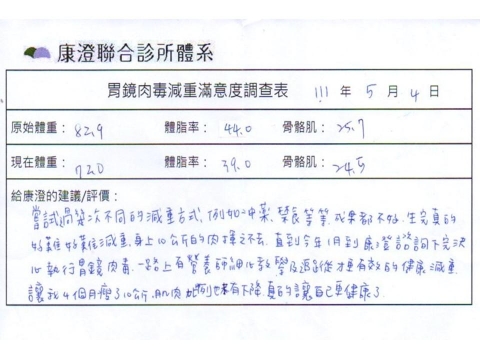 康澄聯合診所體系
胃鏡肉毒減重滿意度調查表 111 年 5 月 4 日
原始體重: 82.9 體脂率: 44.0 骨骼肌: 25.7
現在體重: 72.0 體脂率: 39.0 骨骼肌: 24.5
給康澄的建議/評價:
嘗試過幾次不同的減重方式,例如中藥、營養等等,成果都不好,生完真的
好難好難減重,身上10公斤的肉揮之不去,直到今年1月到康澄諮詢下定決
心執行胃鏡肉毒,一路上有營養師細心教學及追蹤才更有效的健康減重,
讓我4個月瘦了10公斤,肌肉也沒有下降,真的讓自己更健康了。